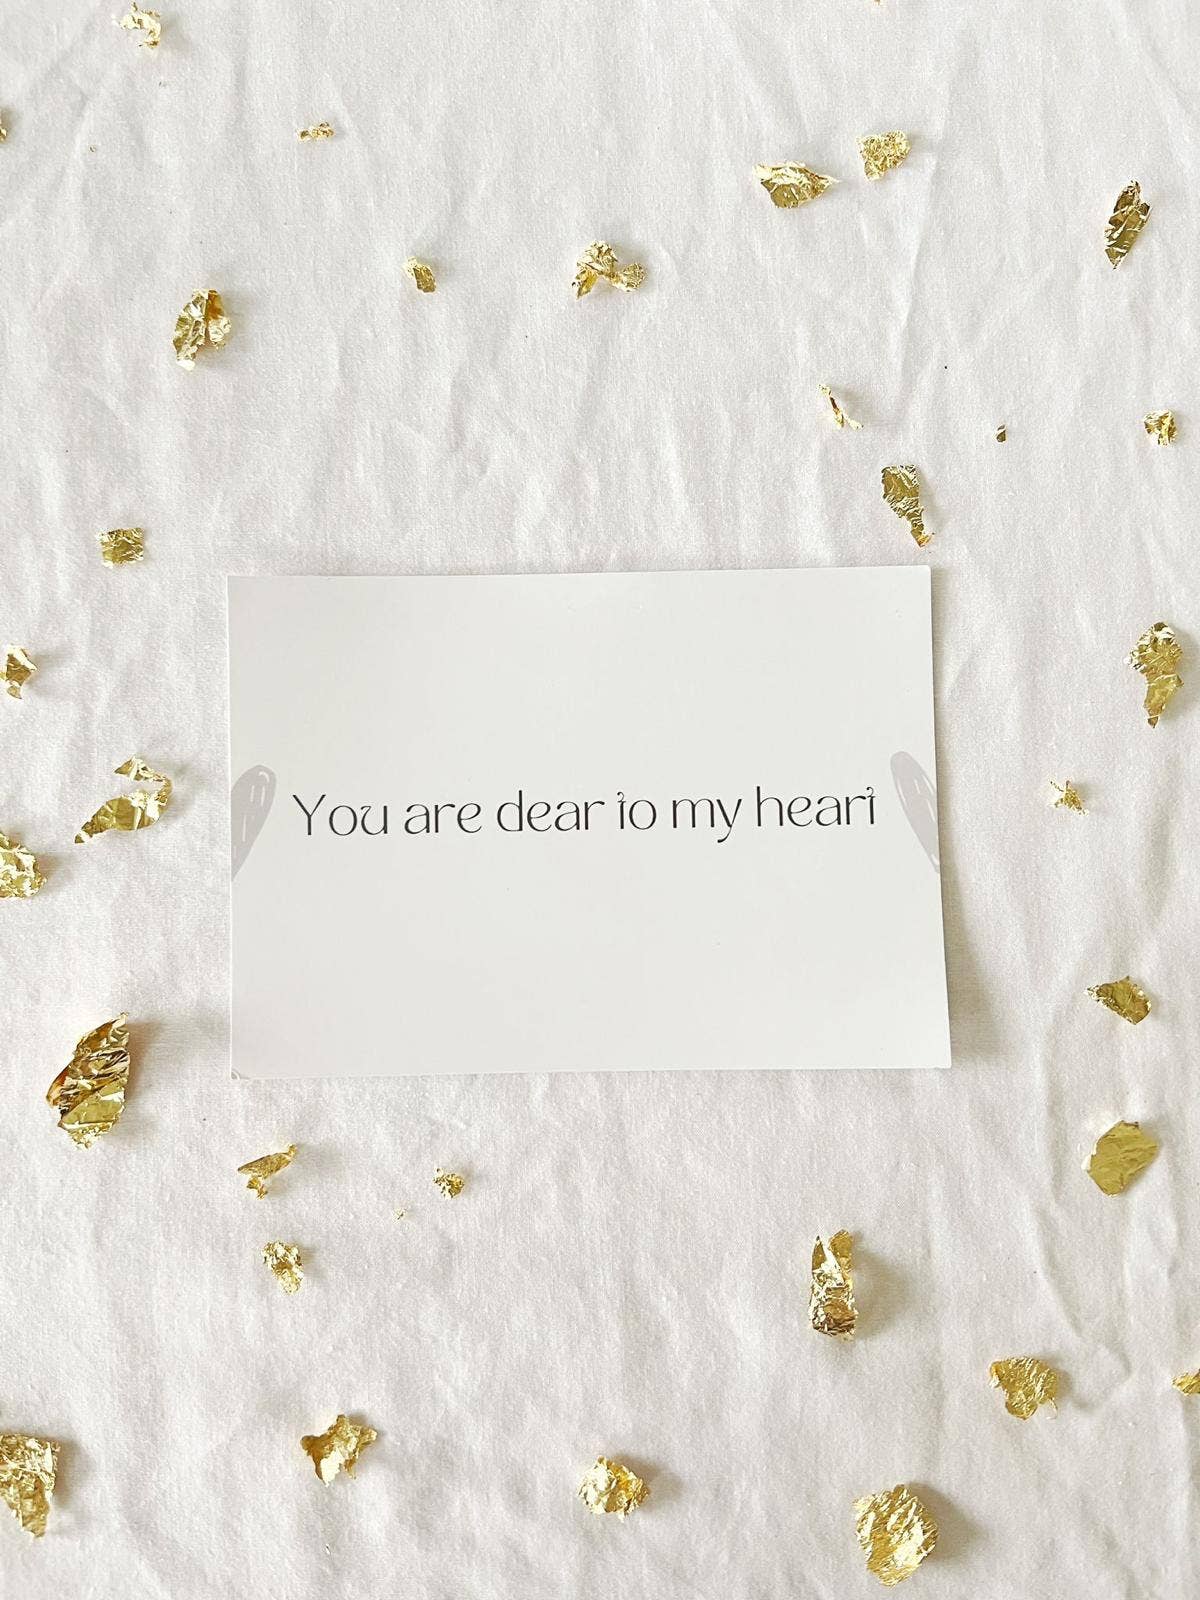 You are dear to my heart